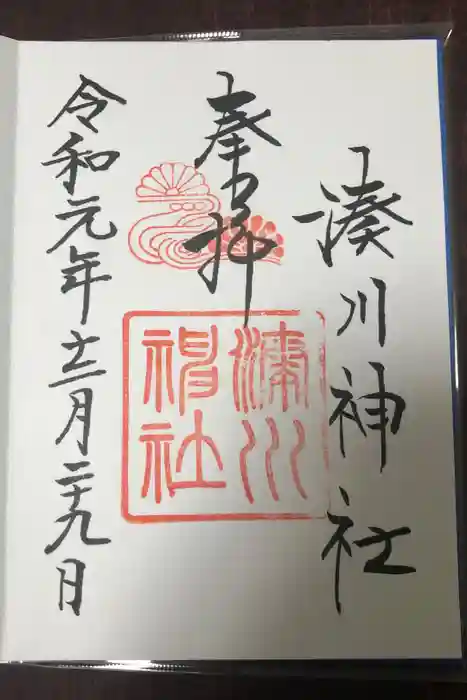 湊川神社
奉拝
湊川神社
令和元年十二月二十九日